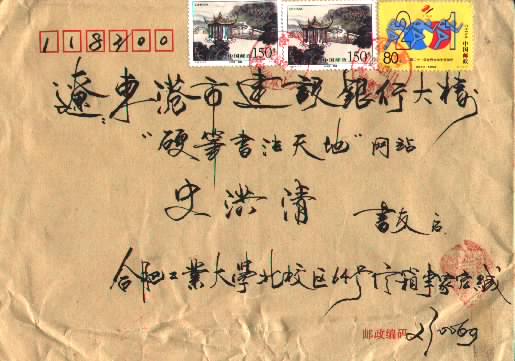 118300
150分 中国邮政
150分 中国邮政
80分 2001 中国邮政
遼:東港市建設銀行大樓
“硬筆書法天地”网站
史洪清 書友 啟
合肥工業大學北校区64号信箱李家宏緘
邮政编码 230069